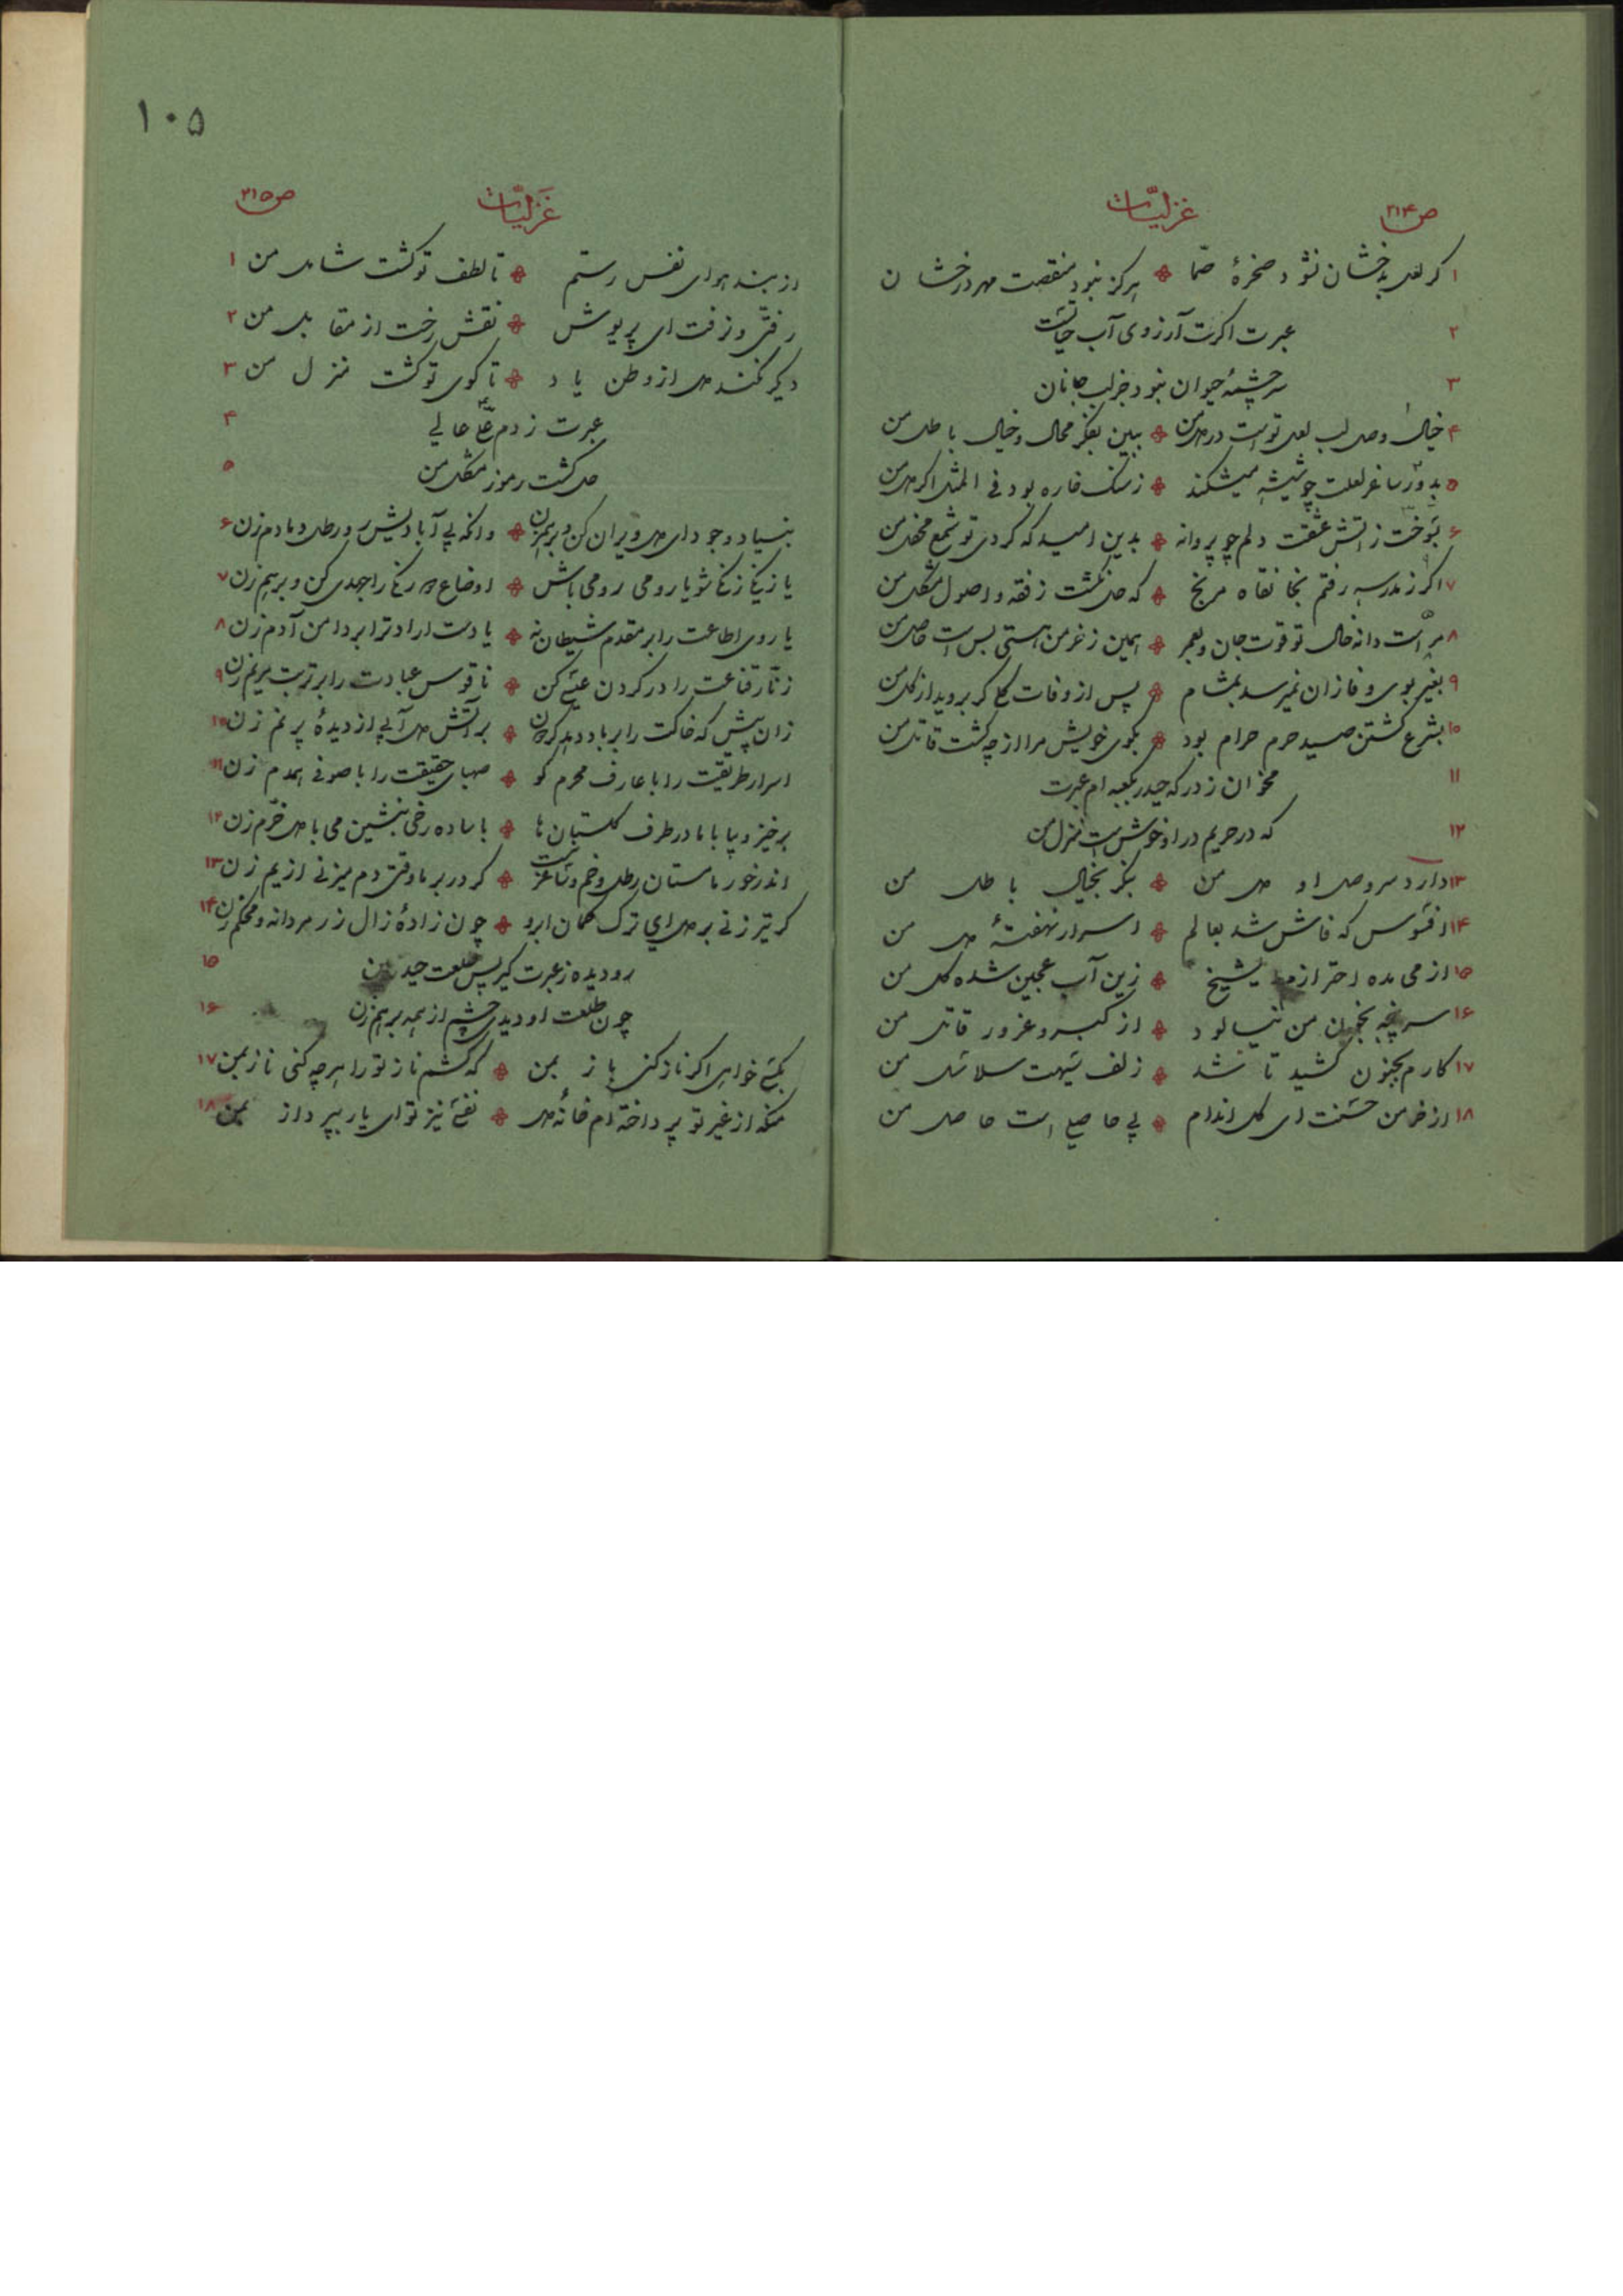 ص۲۱۴ غزلیّات
۱ کر لعل بدخشان نشود صخرهٔ صمّا ٭ هرکز نبود منقصت مهر درخشان
۲ عبرت اکرت آرزوی آب حیاتست
۳ سرچشمهٔ حیوان نبود جز لب جانان
۴ خیال وصل لب لعل تو است در دل من ٭ ببین بفکر محال و خیال باطل من
۵ بدور ساغر لعلت چو شیشه میشکند ٭ ز سنک خاره بود فی المثل اکر دل من
۶ بسوخت ز اتش عشقت دلم چو پروانه ٭ بدین امید که کردی تو شمع محفل من
۷ اکر ز مدرسه رفتم بخانقاه مرنج ٭ که حل نکشت ز فقه و اصول مشکل من
۸ مراست دانه خال تو قوت جان و بعمر ٭ همین ز خرمن هستی بس است حاصل من
۹ بغیر بوی وفا زان نمیرسد بمشام ٭ پس از وفات کلی کر بروید از کل من
۱۰ بشرع کشتن صید حرم حرام بود ٭ بکوی خویش مرا از چه کشت قاتل من
۱۱ مخوان ز درکه حیدر بکعبه ام عبرت
۱۲ که در حریم در او خوش است منزل من
۱۳ دارد سر وصل او دل من ٭ بنکر بخیال باطل من
۱۴ افسوس که فاش شد بعالم ٭ اسرار نهفتهٔ دل من
۱۵ از می مده احترازم ای شیخ ٭ زین آب عجین شده کل من
۱۶ سرپنجه بخون من نیالود ٭ از کبر و غرور قاتل من
۱۷ کارم بجنون کشید تا شد ٭ زلف سیهت سلاسل من
۱۸ از خرمن حسنت ای کل اندام ٭ بی حاصلی است حاصل من
۱۰۵
غزلیّات ص۲۱۵
از بند هوای نفس رستم ٭ تا لطف تو کشت شامل من ۱
رفتی و نرفت ای پریوش ٭ نقش رخت از مقابل من ۲
دیکر نکند دل از وطن یاد ٭ تا کوی تو کشت منزل من ۳
عبرت ز دم علّی عالی ۴
حل کشت رموز مشکل من ۵
بنیاد وجود ای دل ویران کن و برهم زن ٭ وانکه پی آبادیش رو رطل دمادم زن ۶
یا زنکی زنکی شو یا رومی رومی باش ٭ اوضاع دو رنکی را جهدی کن و برهم زن ۷
یا روی اطاعت را بر مقدم شیطان نه ٭ یا دست ارادت را بر دامن آدم زن ۸
زنّار قناعت را در کردن عیسی کن ٭ ناقوس عبادت را بر تربت مریم زن ۹
زان پیش که خاکت را بر باد دهد کردون ٭ بر آتش دل آبی از دیدهٔ پر نم زن ۱۰
اسرار طریقت را با عارف محرم کو ٭ صهبای حقیقت را با صوفی همدم زن ۱۱
برخیز و بیا با ما در طرف کلستان ها ٭ با ساده رخی بنشین می با دل خرّم زن ۱۲
اندر خور ما مستان رطل و خم و ساغر نیست ٭ کر در بر ما وقتی دم میزنی از یم زن ۱۳
کر تیر زنی بر دل ای ترک کمان ابرو ٭ چون زادهٔ زال زر مردانه و محکم زن ۱۴
رو دیده ز عبرت کیر پس طلعت حیدر بین ۱۵
چون طلعت او دیدی چشم از همه برهم زن ۱۶
بکشی خواهی اکر ناز کنی باز بمن ٭ که کشم ناز تو را هرچه کنی ناز بمن ۱۷
منکه از غیر تو پرداخته ام خانهٔ دل ٭ نفسی نیز تو ای یار بپرداز بمن ۱۸